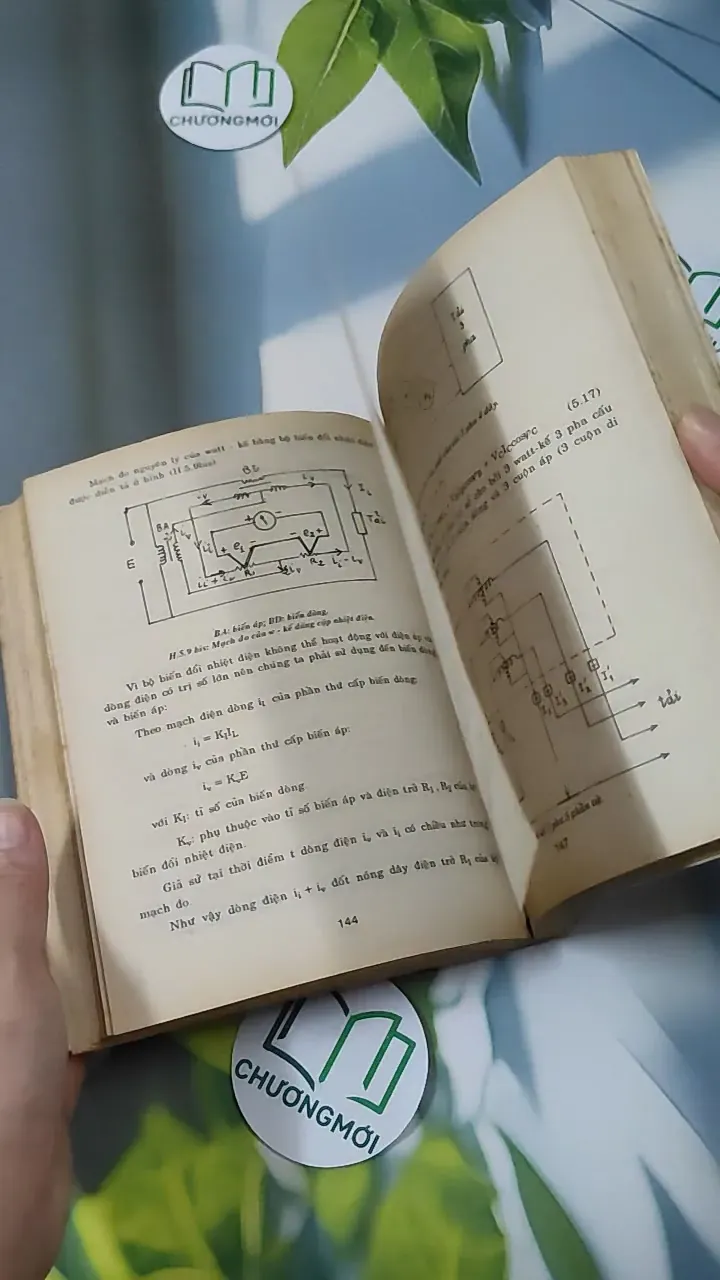 CHƯƠNGMỚI
Mạch đo nguyên lý của watt - kế bằng bộ biến đổi nhiệt điện
được diễn tả ở hình (H.5.9bis)
BD
BA
E
e1
e2
R1
R2
Tải
BA: biến áp; BD: biến dòng.
H.5.9 bis: Mạch đo của w - kế dùng cặp nhiệt điện.
Vì bộ biến đổi nhiệt điện không thể hoạt động với điện áp và
dòng điện có trị số lớn nên chúng ta phải sử dụng đến biến dòng
và biến áp:
Theo mạch điện dòng iL của phần thứ cấp biến dòng:
ii = KIIL
và dòng iv của phần thứ cấp biến áp:
iv = KvE
với K1: tỉ số của biến dòng
Kv: phụ thuộc vào tỉ số biến áp và điện trở R1, R2 của
biến đổi nhiệt điện.
Giả sử tại thời điểm t dòng điện iv và ii có chiều như trong
mạch đo.
Như vậy dòng điện ii + iv đốt nóng dây điện trở R1 của
144
Tải
3
pha
VCICcosφC (5.17)
cho bởi 3 watt-kế 3 pha cấu
dòng và 3 cuộn áp (3 cuộn di
tải
147
CHƯƠNGMỚI